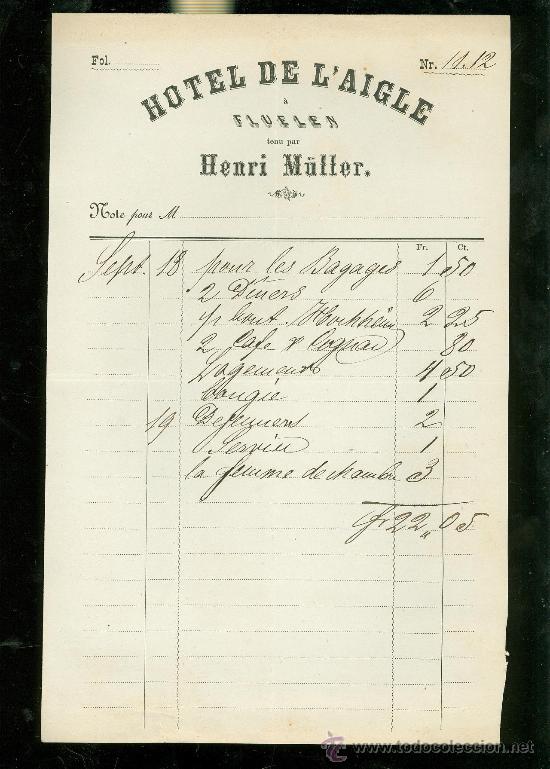 Fol.
Nr. 11.12
HOTEL DE L'AIGLE
à
FLUELEN
tenu par
Henri Müller.
Note pour M
Fr. Ct.
Sept. 18 pour les Bagages 1 50
2 Diners 6
1/2 bout Hochheim 2 25
2 Cafe & Cognac 80
Logements 4 50
Bougie 1
19 Dejeuners 2
Service 1
la femme de chambre 3
fr 22 „ 05
todocoleccion
www.todocoleccion.net